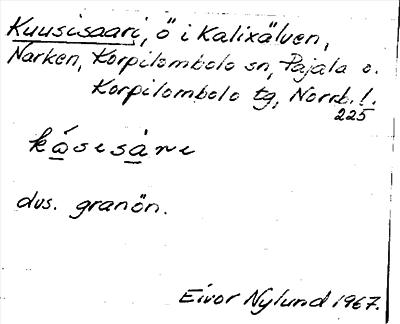 Kuusisaari, ö i Kalixälven,
Narken, Korpilombolo sn, Pajala o.
Korpilombolo tg, Norrb. l.
225
kọ́sisạ̄ri
dvs. granön.
Eivor Nylund 1967.